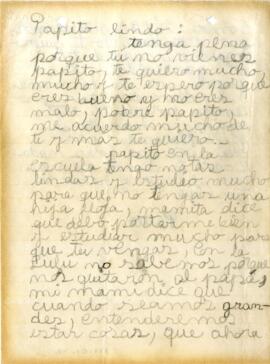 Papito lindo:
tenga pena
porque tu no vienes
papito, te quiero mucho,
mucho y te espero porque
eres bueno y no eres
malo, pobre papito,
me acuerdo mucho de
ti y mas te quiero...
papito en la
escuela tengo notas
lindas y estudio mucho
para que no tengas una
hija floja, mamita dice
que debo portarme bien
y estudiar mucho para
que tu vengas, en la
no sabemos porque
nos quitaron, al papá,
mi mami dice que
cuando seamos gran-
des, entenderemos
estar cosas, que ahora